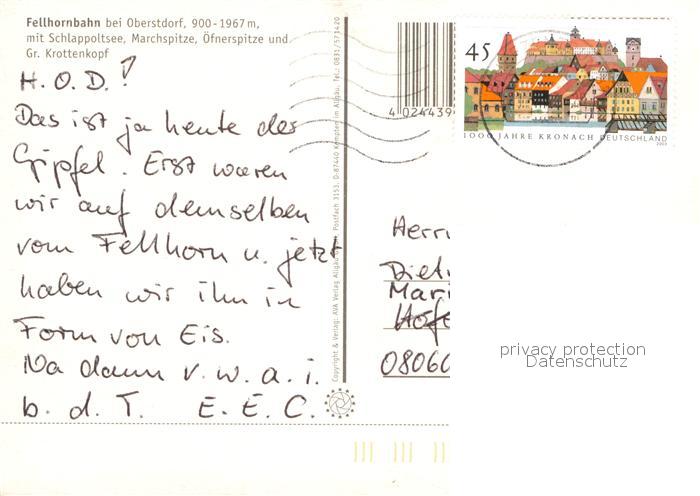 Fellhornbahn bei Oberstdorf, 900-1967m,
mit Schlappoltsee, Marchspitze, Öfnerspitze und
Gr. Krottenkopf
H. O. D.!
Das ist ja heute der
Gipfel. Erst waren
wir auf demselben
vom Fellhorn u. jetzt
haben wir ihn in
Form von Eis.
Na dann v. w. a. i.
b. d. T. E. E. C.
Copyright & Verlag: AVA Verlag Allgäu Postfach 3153, D-87440 Kempten im Allgäu, Tel.: 0831/571420
4 024439
45
1000 JAHRE KRONACH DEUTSCHLAND
2003
Herrn
Diet
Mari
Hofe
08060
privacy protection
Datenschutz